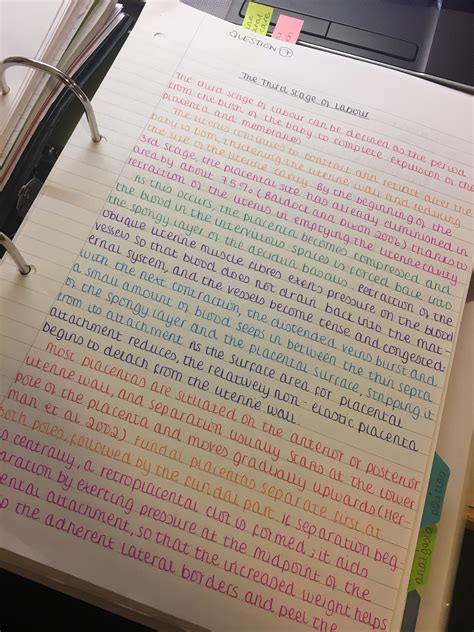 QUESTION 7
The Third Stage of Labour
The third stage of labour can be defined as the period
from the birth of the baby to complete expulsion of the
placenta and membranes.
The uterus continues to contract and retract after the
baby is born, thickening the uterine wall and reducing
the size of the uterine cavity. By the beginning of the
3rd stage, the placental site has already diminished in
area by about 75% (Baldock and Dixon 2006) thanks to
retraction of the uterus in emptying the uterine cavity
As this occurs, the placenta becomes compressed and
the blood in the intervillous spaces is forced back into
the spongy layer of the decidua basalis. Retraction of the
oblique uterine muscle fibres exerts pressure on the blood
vessels so that blood does not drain back into the mat-
ernal system, and the vessels become tense and congested.
With the next contraction, the distended veins burst and
a small amount of blood seeps in between the thin septa
of the spongy layer and the placental surface, stripping it
from its attachment. As the surface area for placental
attachment reduces, the relatively non-elastic placenta
begins to detach from the uterine wall.
Most placentas are situated on the anterior or posterior
uterine wall, and separation usually starts at the lower
pole of the placenta and moves gradually upwards (Her-
man et al 2002) Fundal placentas separate first at
both poles, followed by the fundal part. If separation beg-
s centrally, a retroplacental clot is formed; it aids
aration by exerting pressure at the midpoint of the
ental attachment, so that the increased weight helps
p the adherent lateral borders and peel the
analgesia